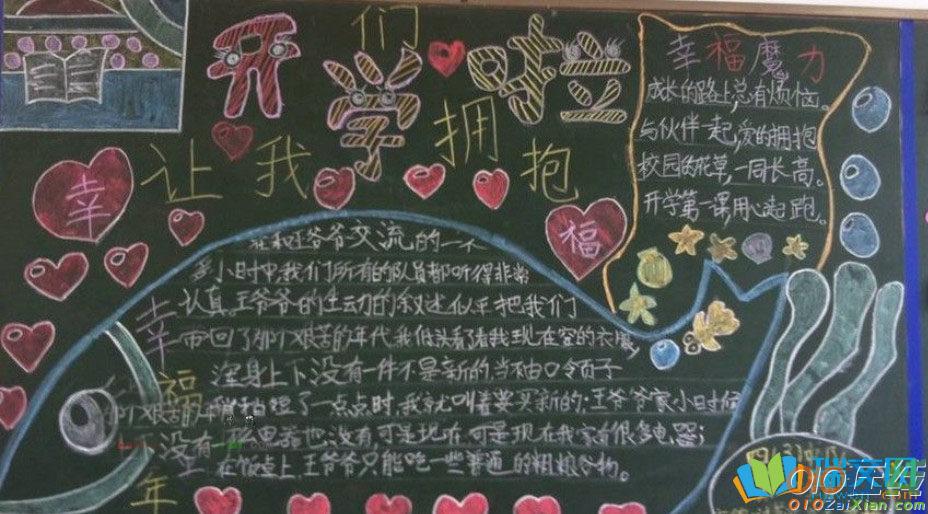 开学啦
让我们拥抱
幸
福
幸福魔力
成长的路上,总有烦恼。
与伙伴一起,爱的拥抱
校园的花草,一同长高。
开学第一课用心起跑。
在和王爷爷交流的一个
多小时中,我们所有的队员都听得非常
认真。王爷爷的生动的叙述似乎把我们
带回了那个艰苦的年代,我低头看了看我现在穿的衣服,
浑身上下没有一件不是新的,当袖口、领子
稍稍短了一点点时,我就叫着要买新的;王爷爷家小时候
没有
电器也没有,可是现在,可是现在我家有很多电器;
在饭桌上,王爷爷只能吃一些普通的粗粮谷物。
幸
福
年
010在线
010ZaiXian.com